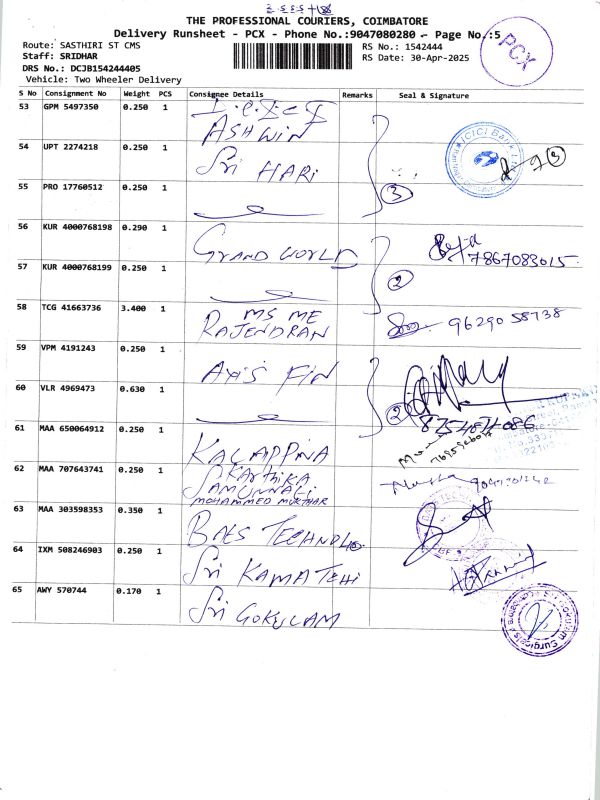 THE PROFESSIONAL COURIERS, COIMBATORE
Delivery Runsheet - PCX - Phone No.:9047080280 - Page No.:5
Route: SASTHIRI ST CMS
Staff: SRIDHAR
DRS No.: DCJB154244405
Vehicle: Two Wheeler Delivery
RS No.: 1542444
RS Date: 30-Apr-2025
PCX
S No Consignment No Weight PCS Consignee Details Remarks Seal & Signature
53 GPM 5497350 0.250 1 I.C.I.C.I
ASHWIN
54 UPT 2274218 0.250 1 Sri HARi
ICICI Bank
3
55 PRO 17760512 0.250 1
3
56 KUR 4000768198 0.290 1 GRAND WORLD
7867083015
57 KUR 4000768199 0.250 1
2
58 TCG 41663736 3.400 1 MS ME
RAJENDRAN
96290 58738
59 VPM 4191243 0.250 1 AXIS FIN
60 VLR 4969473 0.630 1
2
61 MAA 650064912 0.250 1 KALAPPINA
62 MAA 707643741 0.250 1 S KARTHIKA
MOHAMMED MUKTHAR
63 MAA 303598353 0.350 1 BAES TECHNO
64 IXM 508246903 0.250 1 Sri KAMATCHI
65 AWY 570744 0.170 1 Sri GOKULAM